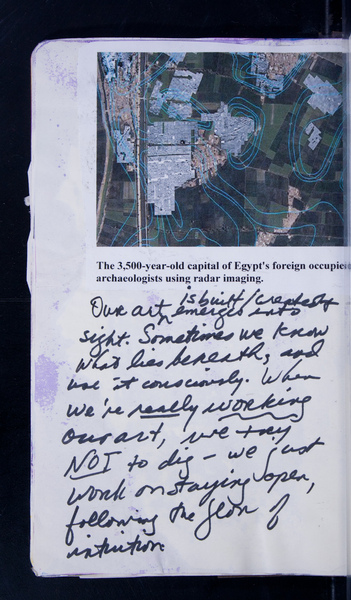 The 3,500-year-old capital of Egypt's foreign occupie
archaeologists using radar imaging.
is built/
Our art, emerges into
sight. Sometimes we know
what lies beneath, and
use it consciously. When
we're really working
our art, we try
NOT to dig - we just
work on staying open,
following the flow of
intuition